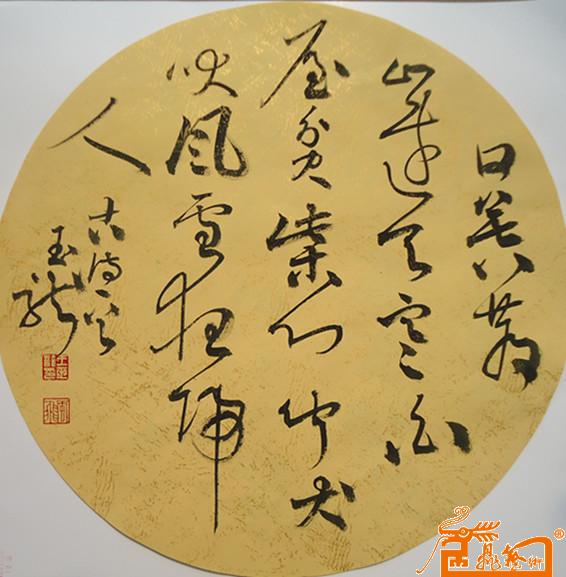 日暮苍
山远天寒白
屋贫柴门闻犬
吠风雪夜归
人
古诗
玉龙